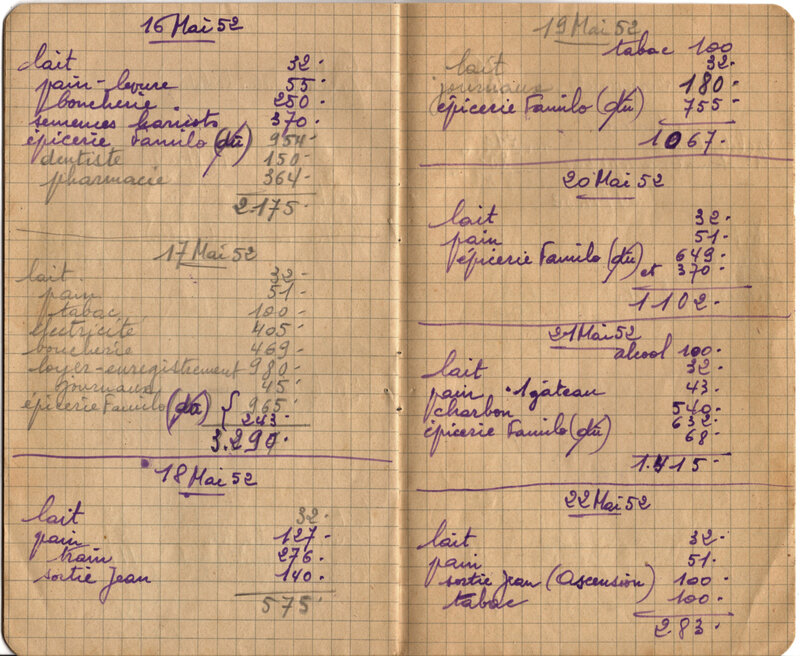 16 Mai 52
lait 32.
pain-levure 55.
boucherie 250.
semences haricots 370.
épicerie Familo (dû) 954.
dentiste 150.
pharmacie 364.
2.175.
17 Mai 52
lait 32.
pain 51.
tabac 100.
électricité 405.
boucherie 469.
loyer-enregistrement 980.
journaux 45.
épicerie Familo (dû) { 965.
243.
3.290.
18 Mai 52
lait 32.
pain 127.
train 276.
sortie Jean 140.
575.
19 Mai 52
tabac 100
lait 32.
journaux 180.
épicerie Familo (dû) 755.
1067.
20 Mai 52
lait 32.
pain 51.
épicerie Familo (dû) 649.
et 370.
1102.
21 Mai 52
alcool 100.
lait 32.
pain . 1 gâteau 43.
charbon 540.
épicerie Familo (dû) 632.
68.
1.415.
22 Mai 52
lait 32.
pain 51.
sortie Jean (Ascension) 100.
tabac 100.
283.